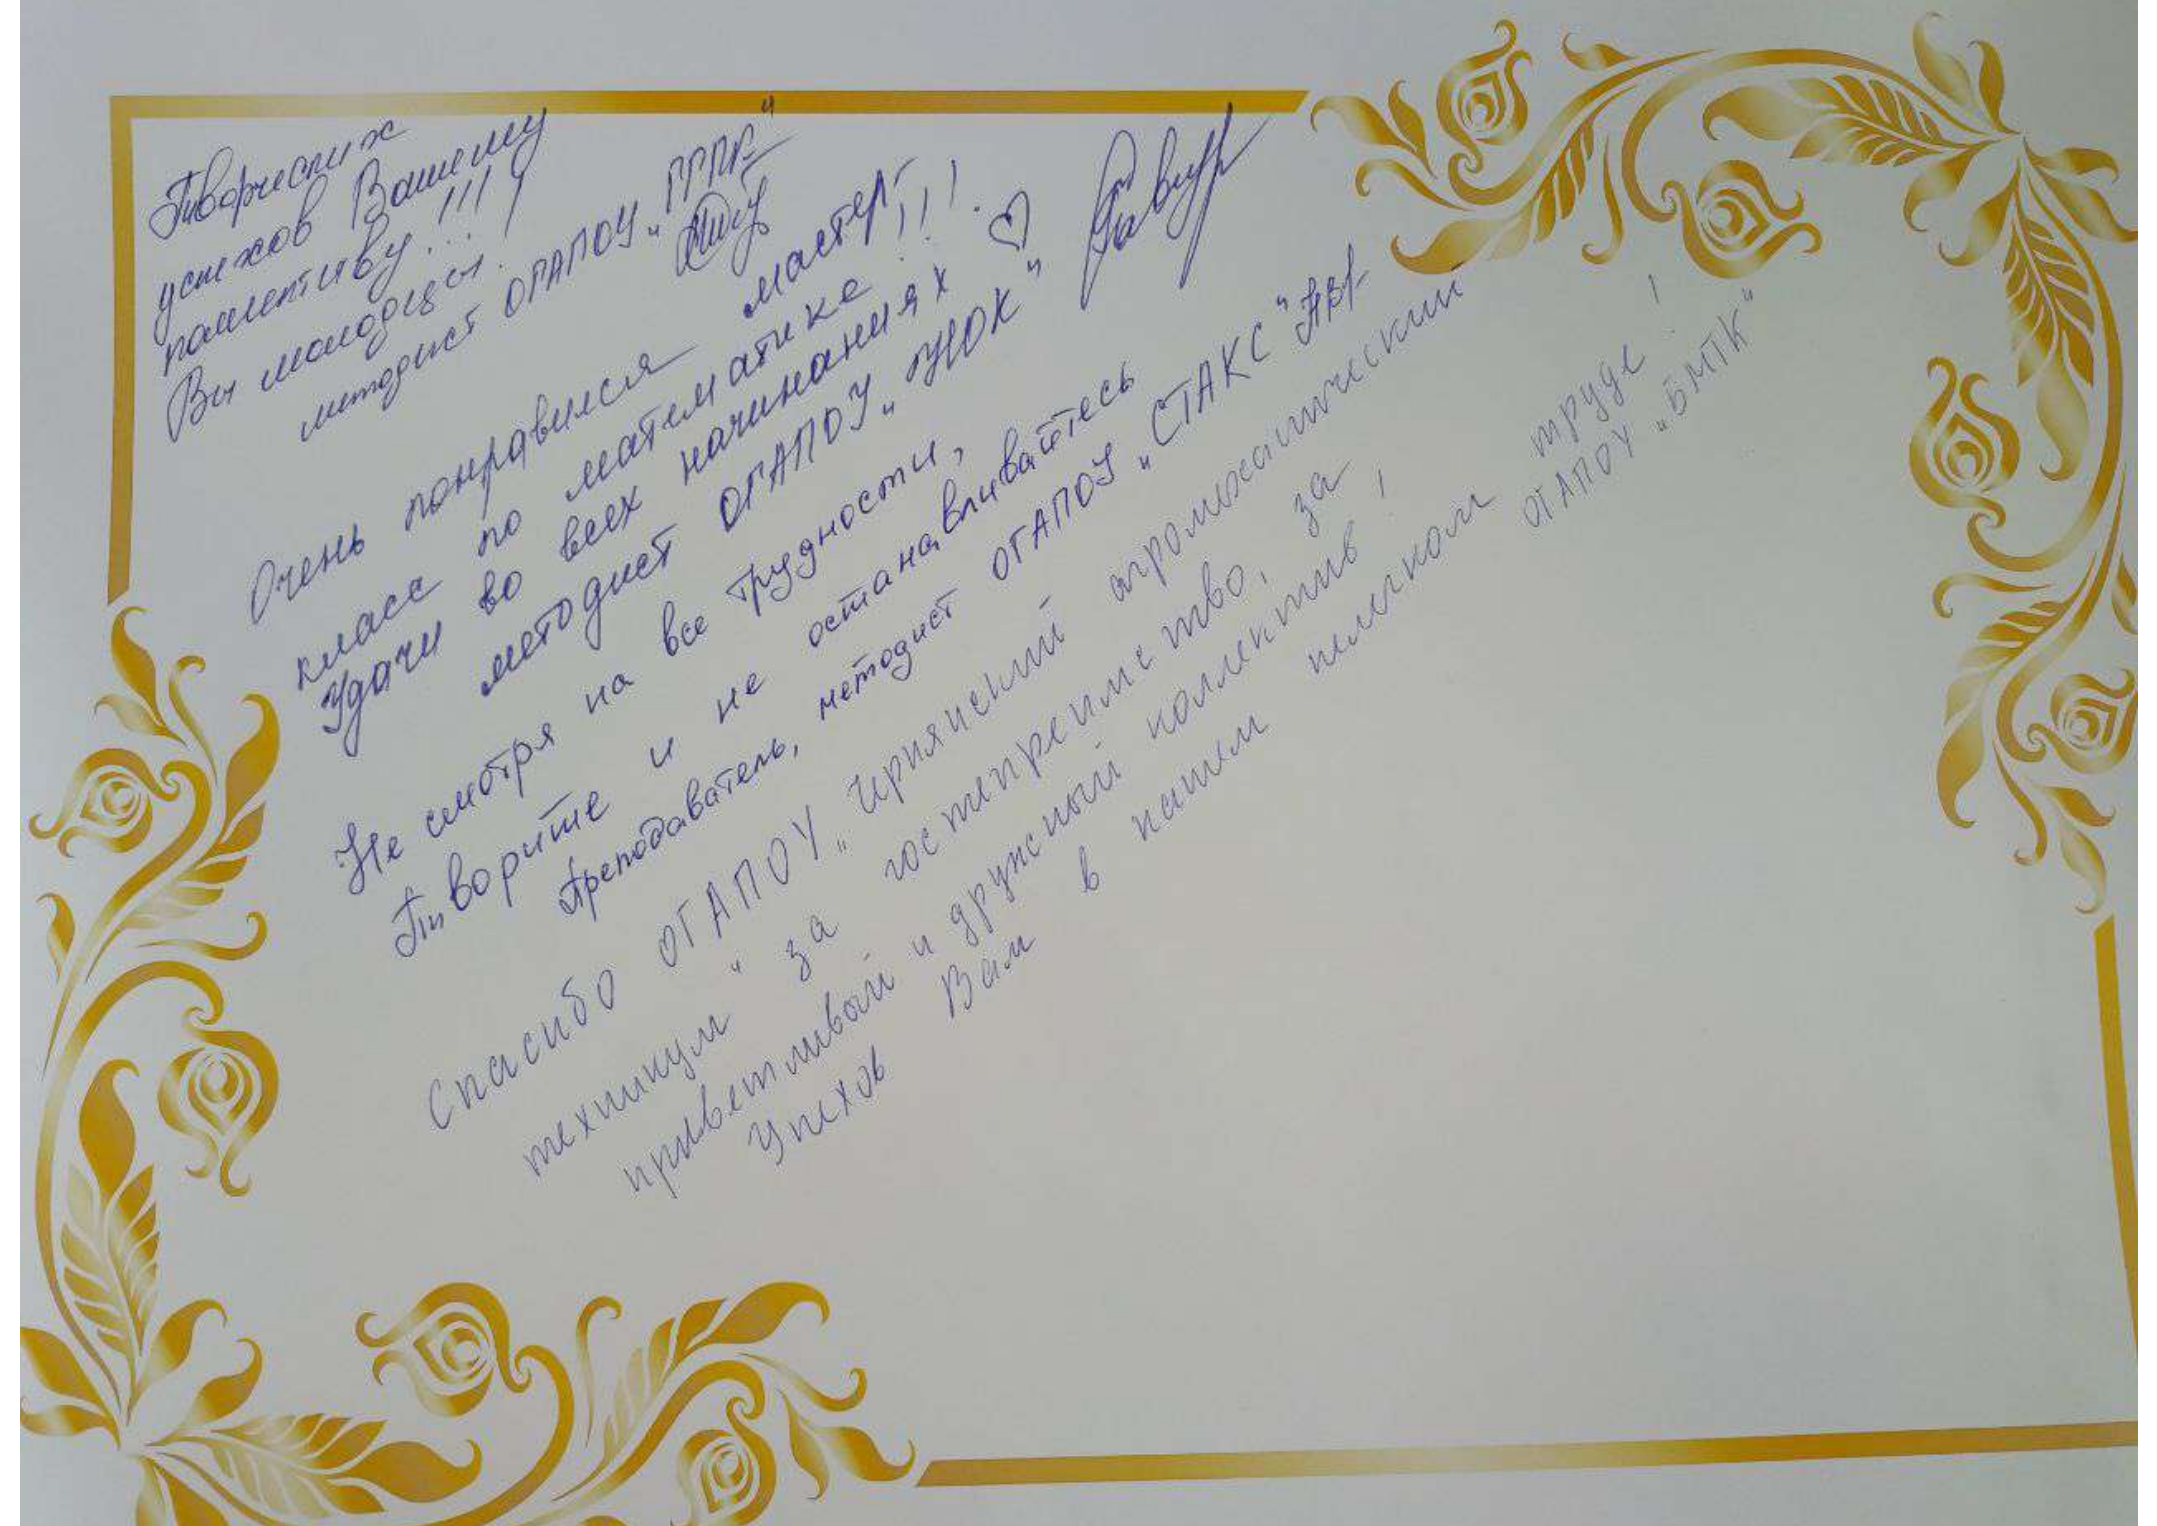 Творческих
успехов Вашему
коллективу!!!
Вы молодцы!
методист ОГАПОУ
Очень понравился мастер-
класс по математике!!!
Удачи во всех начинаниях ♡
методист ОГАПОУ
Не смотря на все трудности,
Творите и не останавливайтесь
Преподаватель, методист ОГАПОУ „СТАКС“
Спасибо ОГАПОУ „Чернянский агромеханический
техникум“ за гостеприимство, за
приветливый и дружный коллектив!
Успехов Вам в нашем нелегком труде!
ОГАПОУ „БМТК“